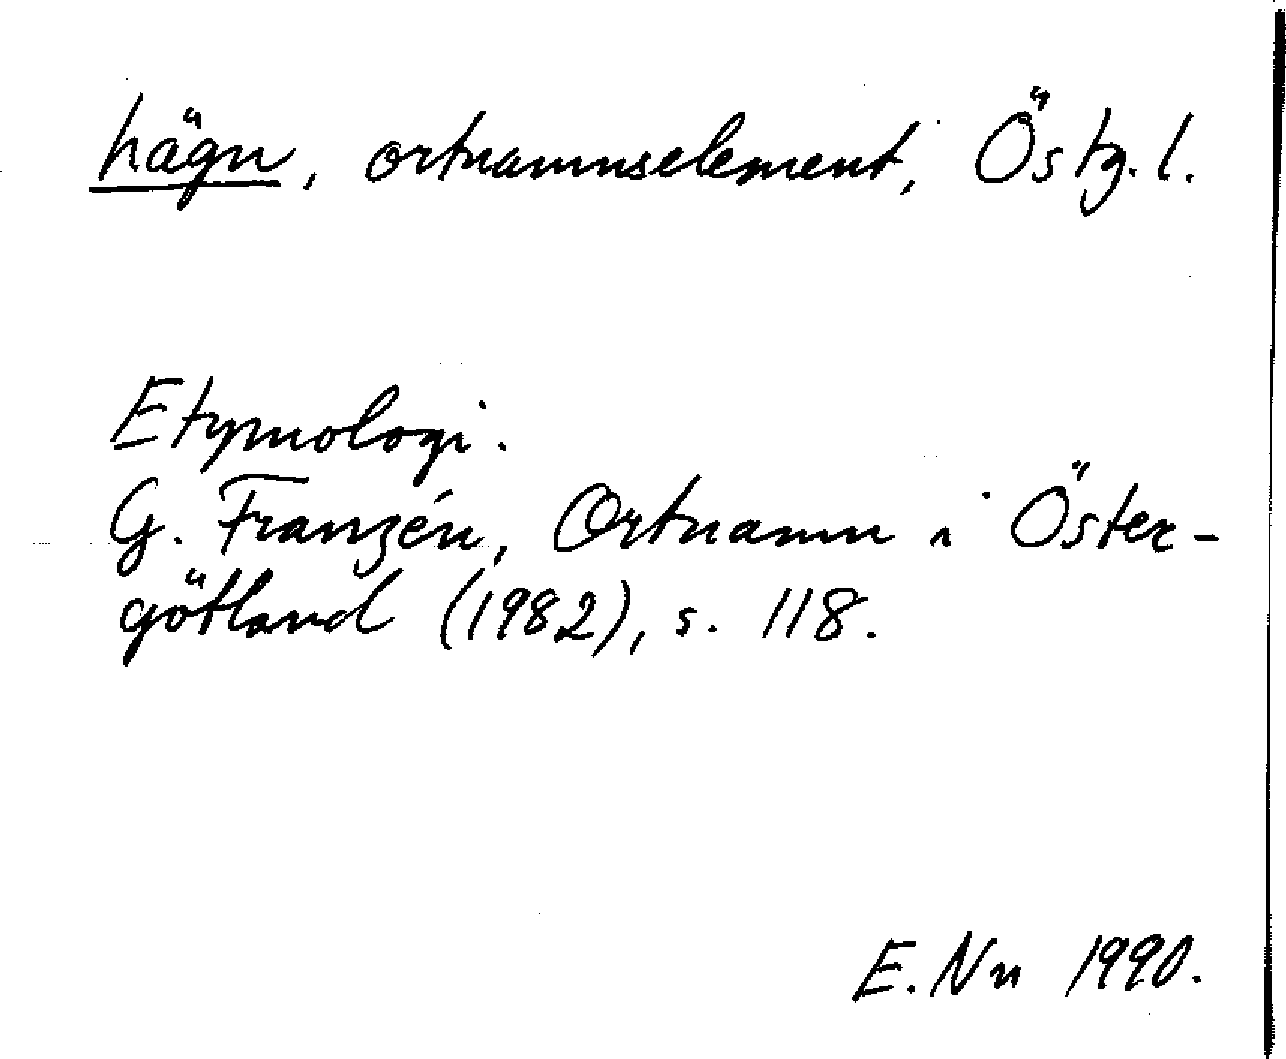 hägn, ortnamnselement, Östg. l.
Etymologi.
G. Franzén, Ortnamn i Öster-
götland (1982), s. 118.
E. Nn 1990.